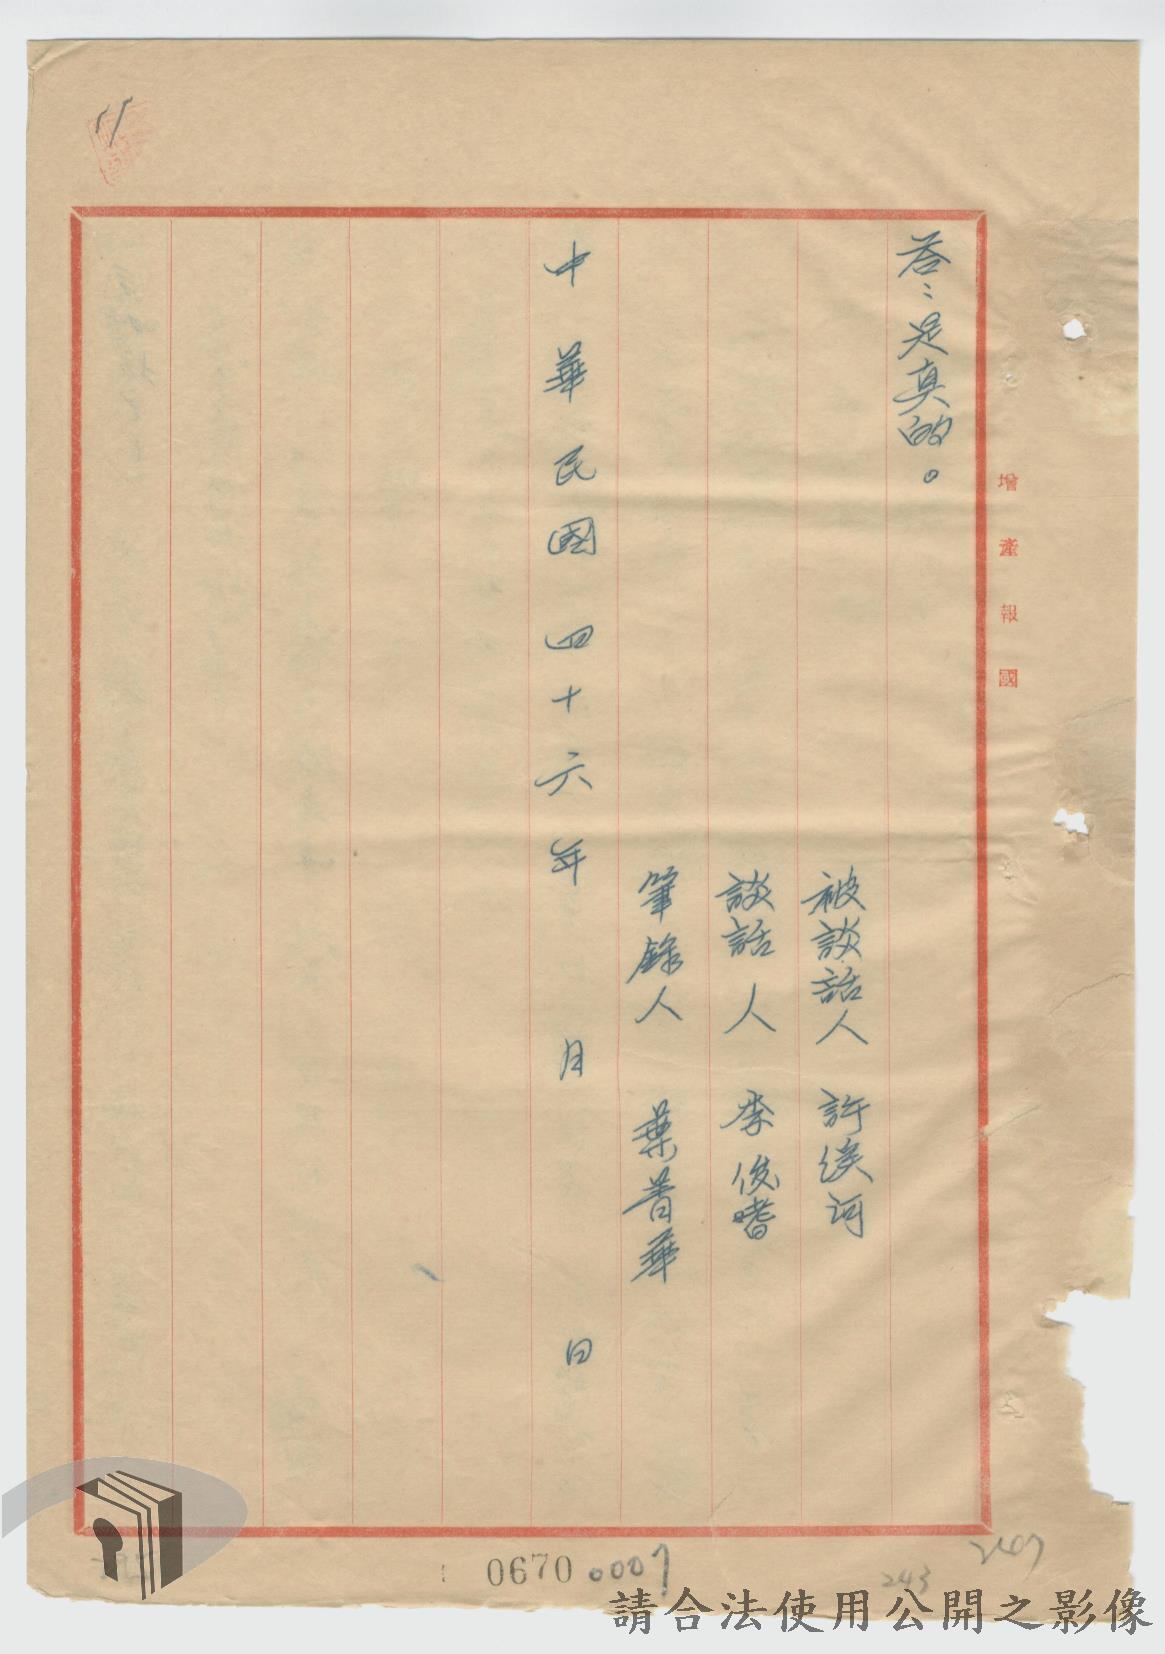 增產報國
答:是真的。
被談話人 許後河
談話人 李俊嗜
筆錄人 葉菁華
中華民國四十六年 月 日
11
0670 0007
243
請合法使用公開之影像